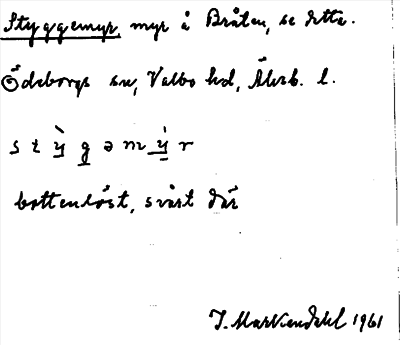 Styggemyr, myr å Bråten, se detta.
Ödeborgs sn, Valbo hd, Älvsb. l.
stỳgəmýr
bottenlöst, svårt där
J. Markendahl 1961